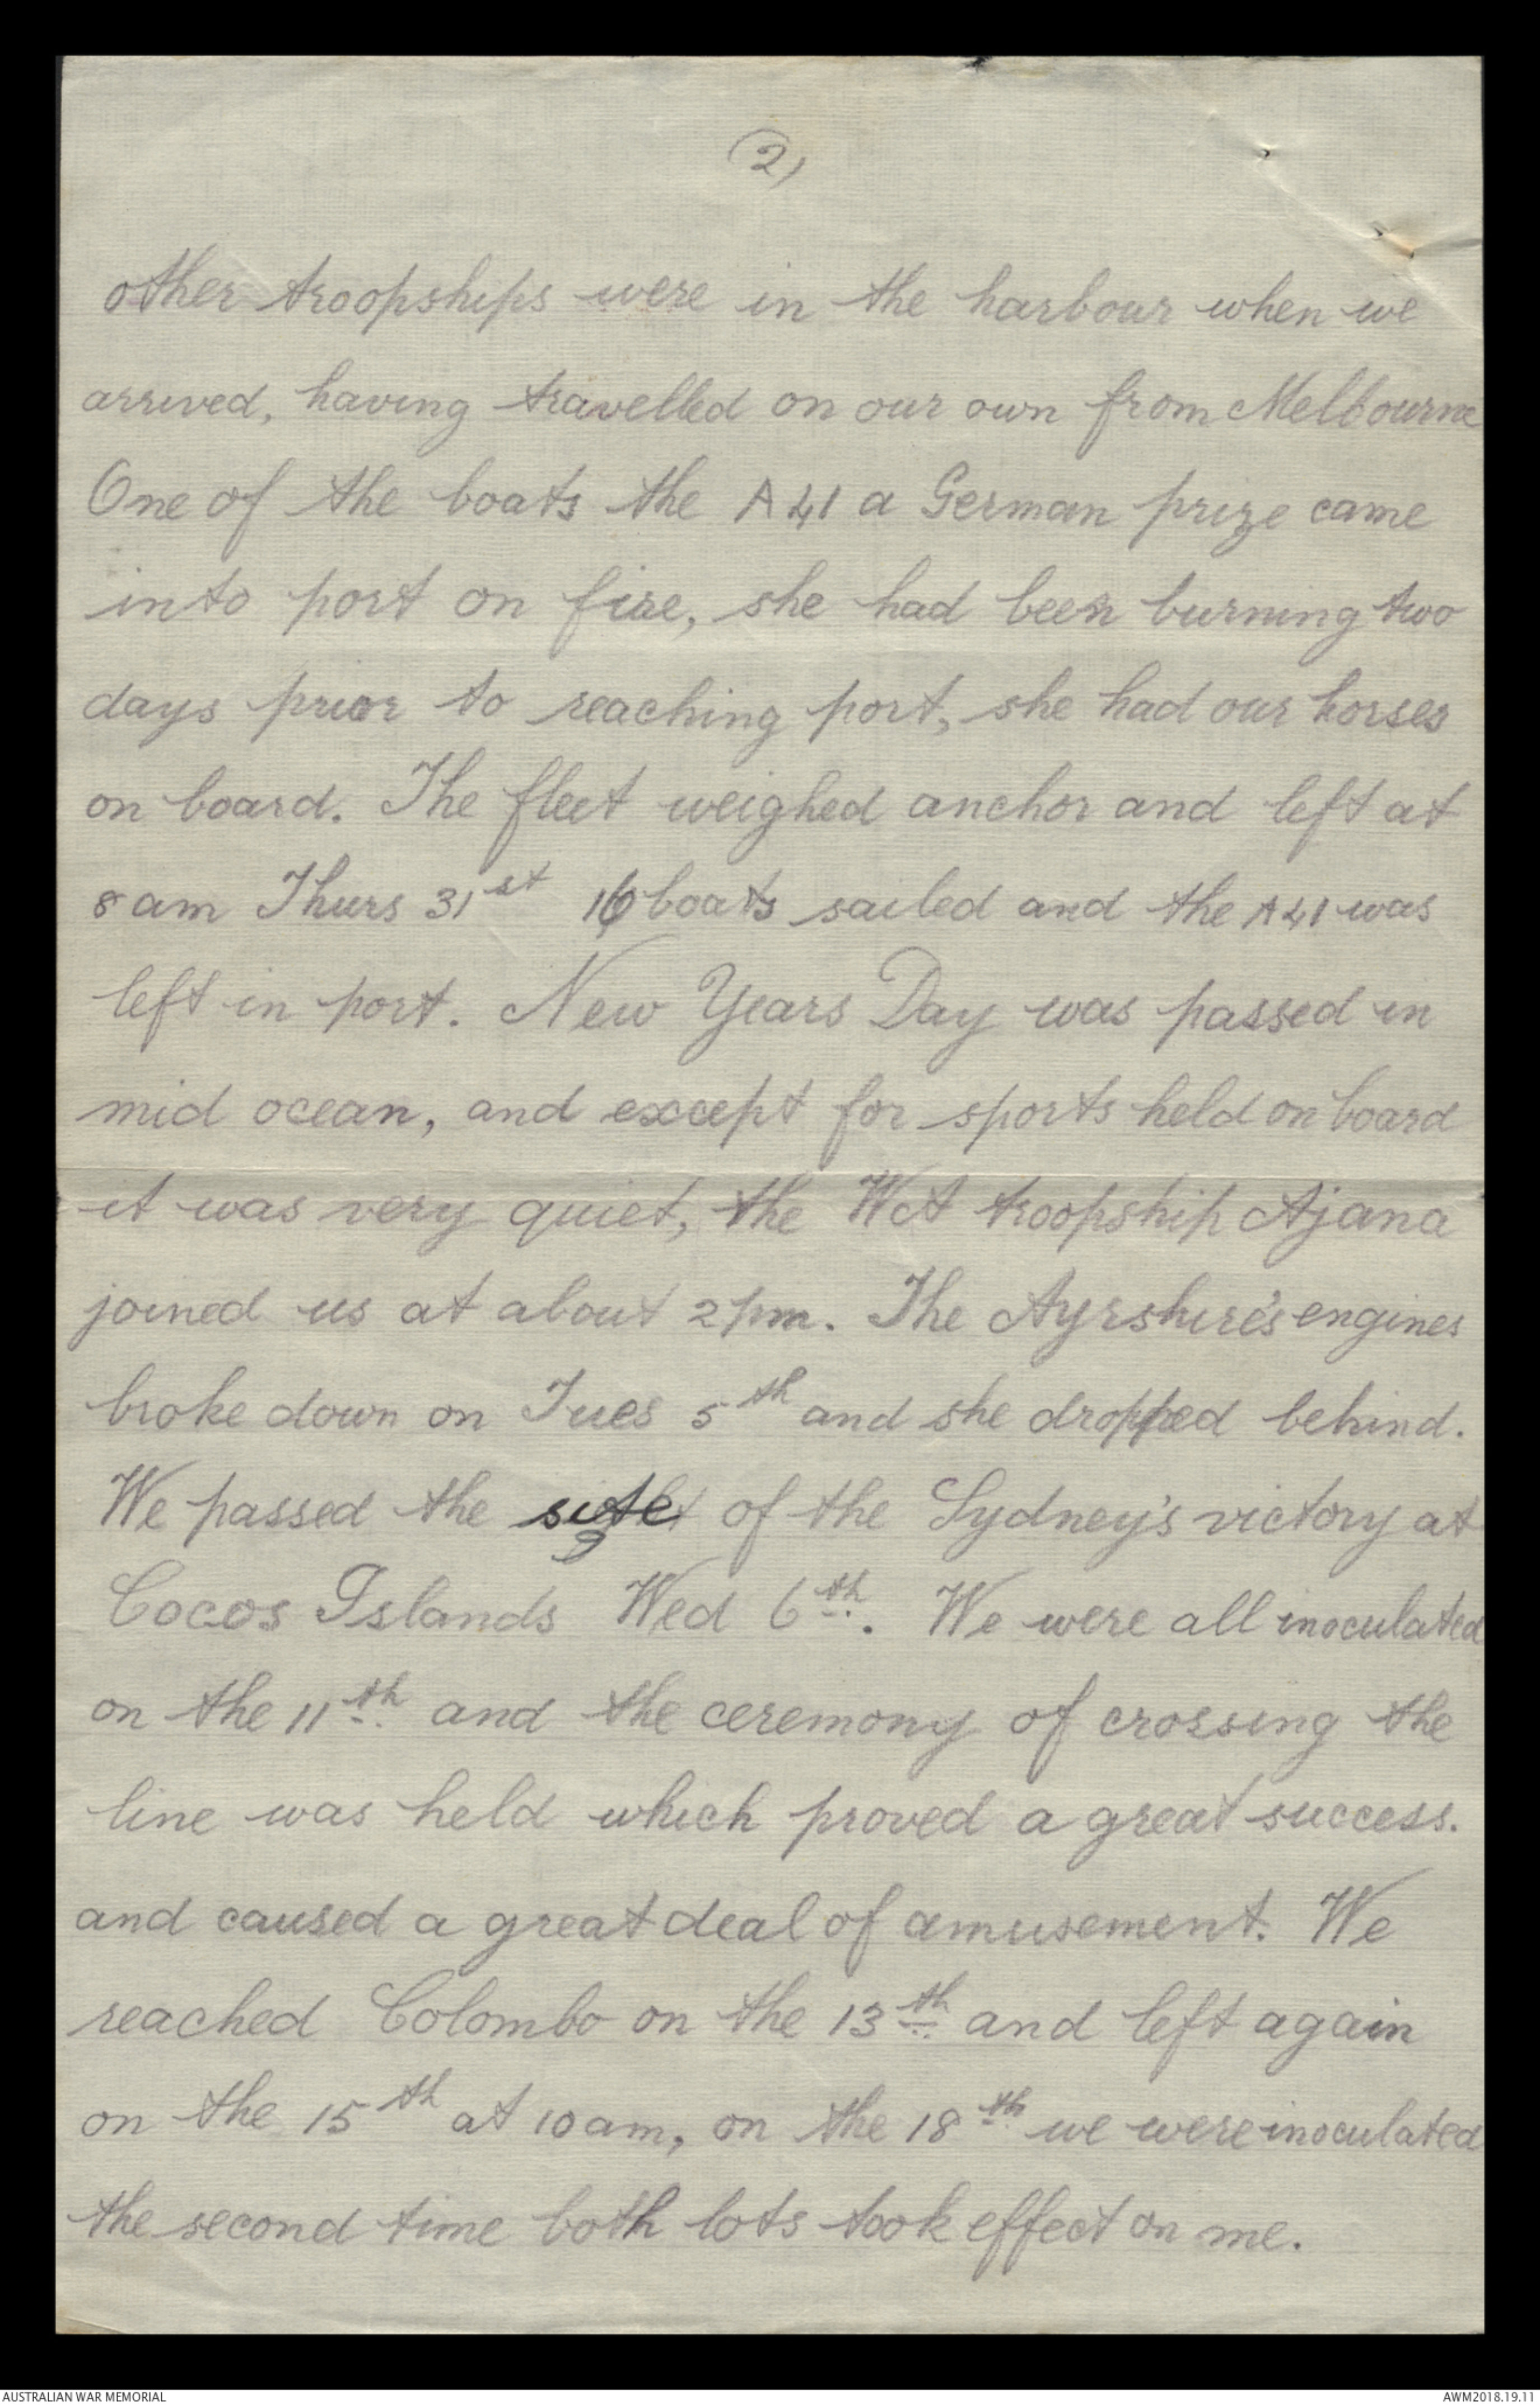 (2)
other troopships were in the harbour when we
arrived, having travelled on our own from Melbourne
One of the boats the A41 a German prize came
into port on fire, she had been burning two
days prior to reaching port, she had our horses
on board. The fleet weighed anchor and left at
8 am Thurs 31st 16 boats sailed and the A41 was
left in port. New Years Day was passed in
mid ocean, and except for sports held on board
it was very quiet, the WA troopship Ajana
joined us at about 2pm. The Ayrshire's engines
broke down on Tues 5th and she dropped behind.
We passed the site of the Sydney's victory at
Cocos Islands Wed 6th. We were all inoculated
on the 11th and the ceremony of crossing the
line was held which proved a great success.
and caused a great deal of amusement. We
reached Colombo on the 13th and left again
on the 15th at 10am, on the 18th we were inoculated
the second time both lots took effect on me.
AUSTRALIAN WAR MEMORIAL
AWM2018.19.11